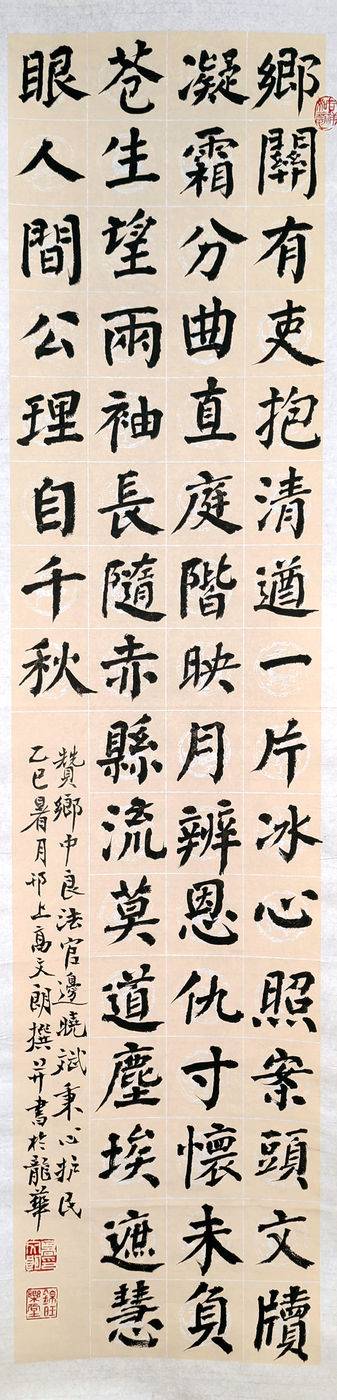 鄉關有吏抱清遒一片冰心照案頭文牘
凝霜分曲直庭階映月辨恩仇寸懷未負
蒼生望兩袖長隨赤縣流莫道塵埃遮慧
眼人間公理自千秋
贊鄉中良法官邊曉斌秉心护民
乙巳暑月邗上高天朗撰并書於龍華